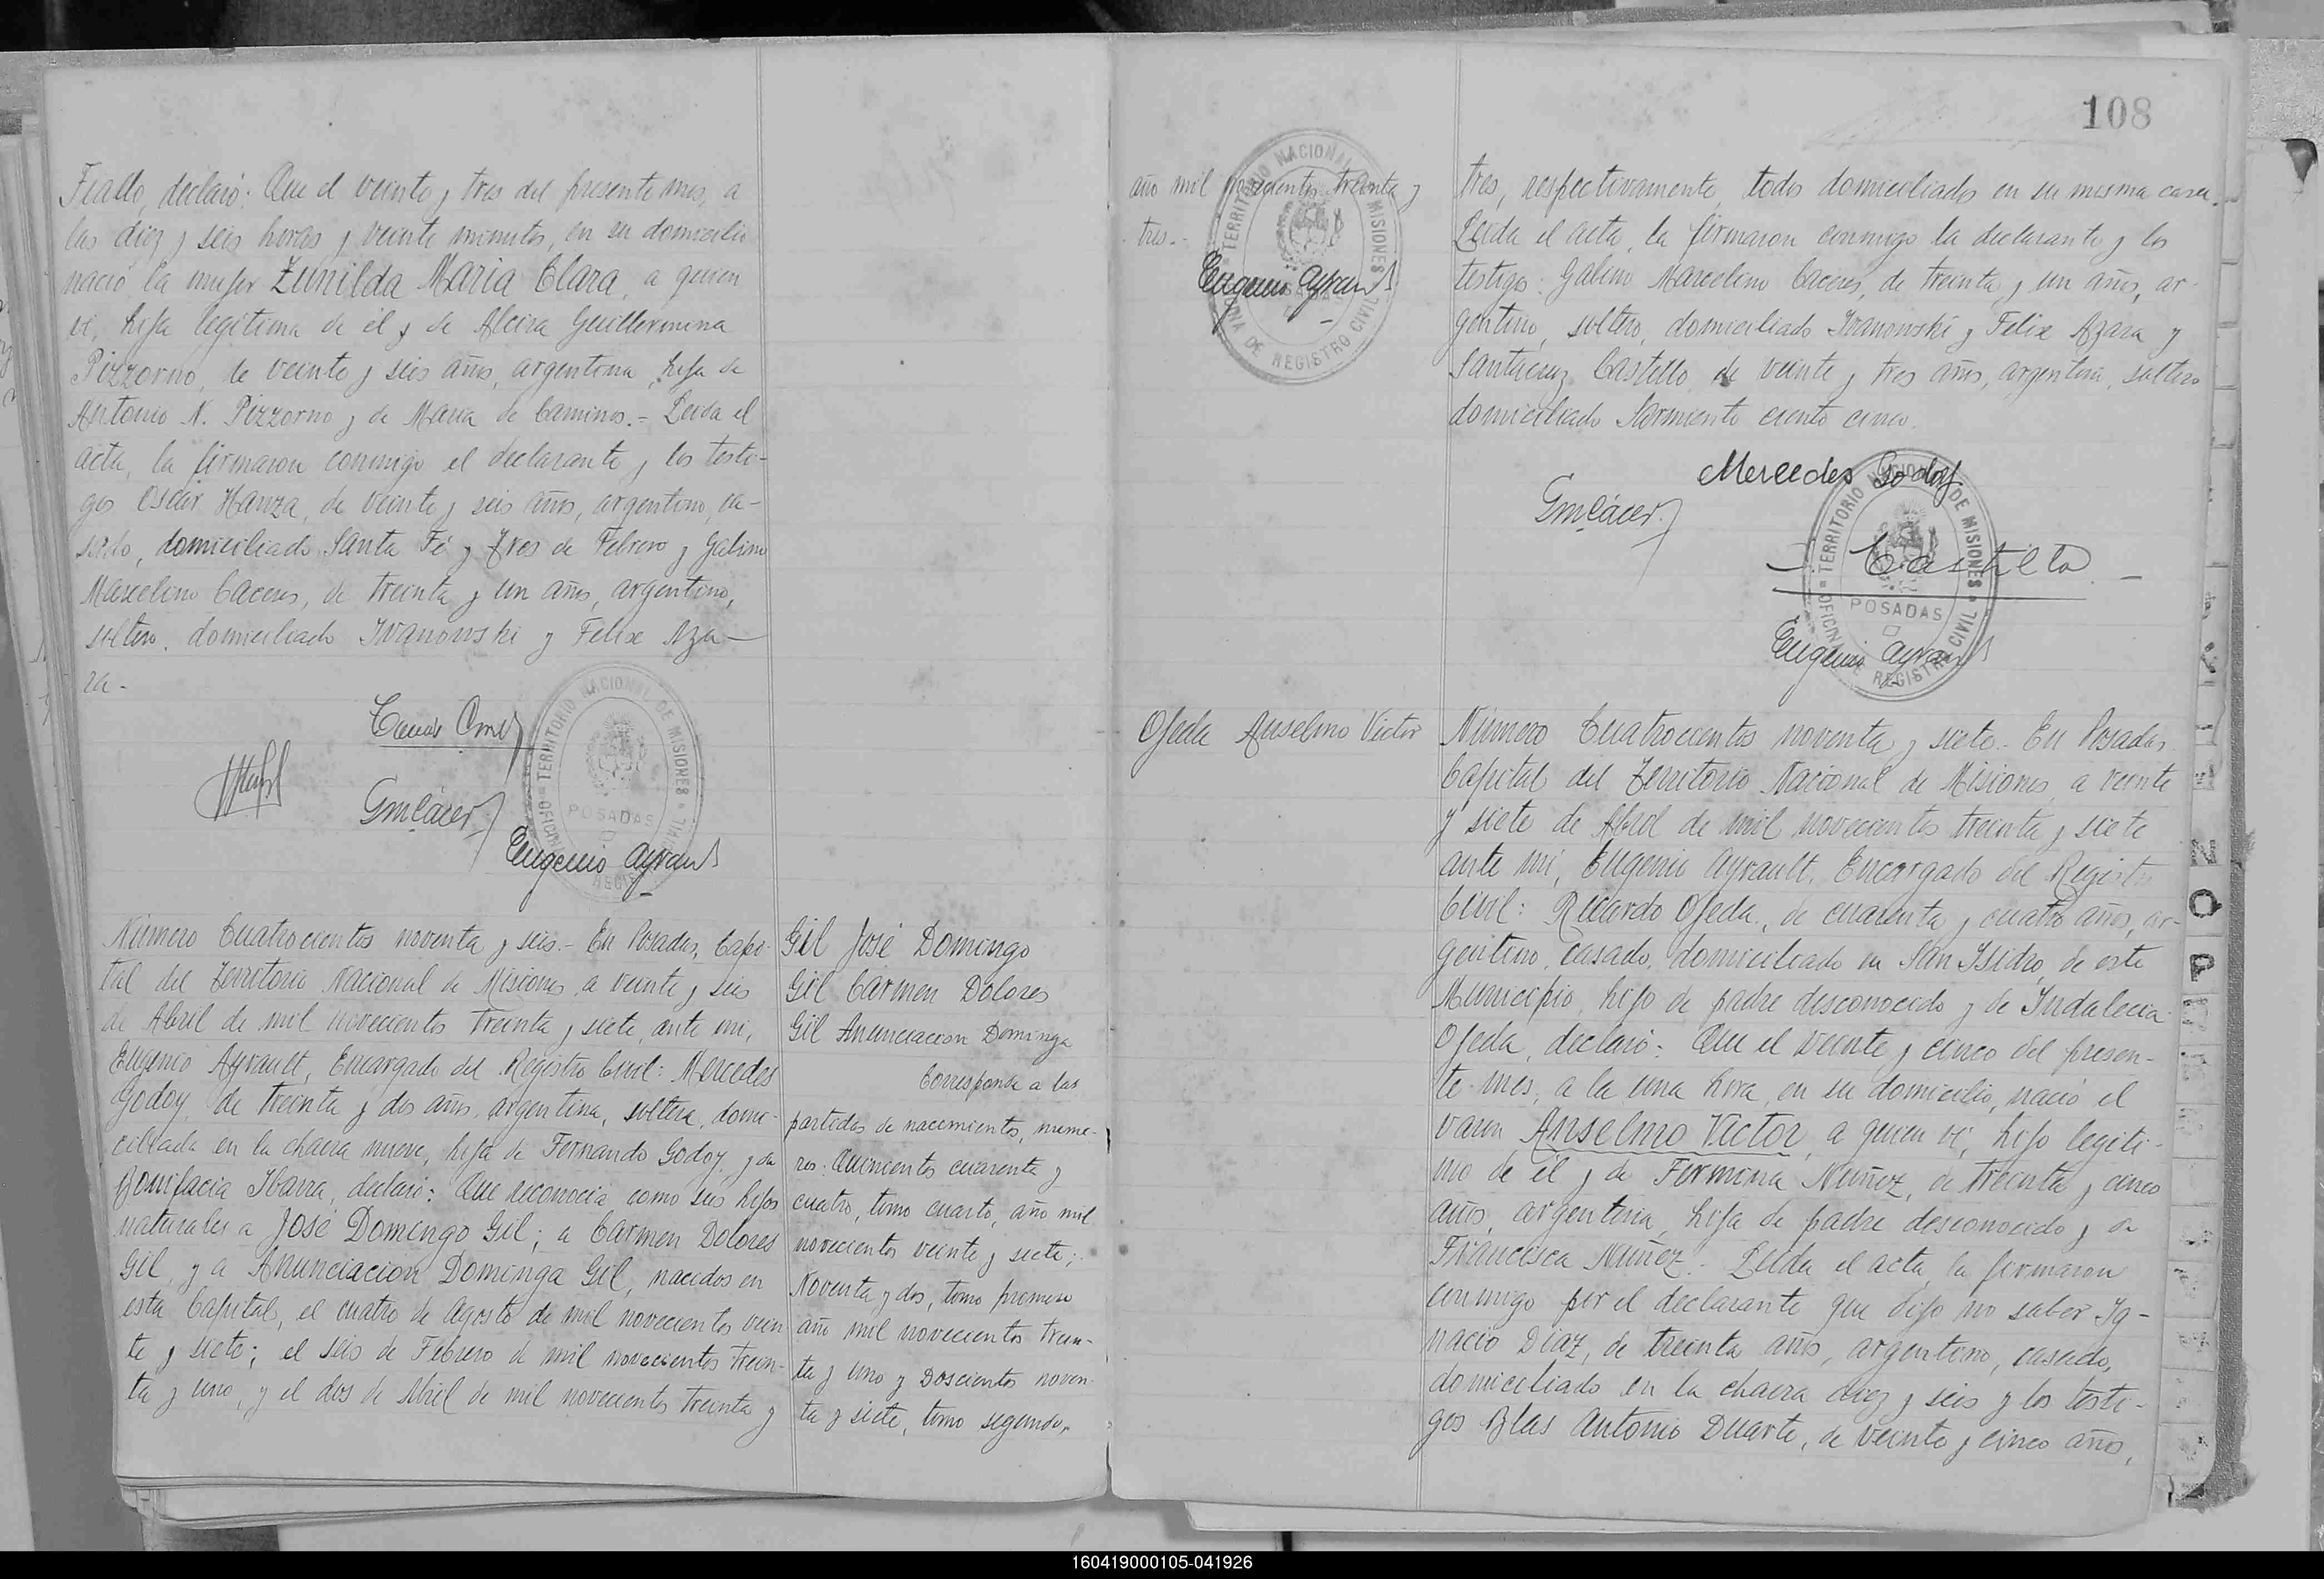 Fiallo, declaró: Que el veinte y tres del presente mes, a
las diez y seis horas y veinte minutos, en su domicilio
nació la mujer Zunilda Maria Clara, a quien
vi, hija legitima de él y de Alcira Guillermina
Pizzorno, de veinte y seis años, argentina, hija de
Antonio N. Pizzorno y de Maria de Caminos.= Leida el
acta, la firmaron conmigo el declarante y los testi-
gos Oscar Hanza, de veinte y seis años, argentino, ca-
sado, domiciliado Santa Fé y Tres de Febrero y Gabino
Marcelino Caceres, de treinta y un años, argentino,
soltero, domiciliado Ivanowski y Felix Aza-
ra-
GmCácer
TERRITORIO NACIONAL DE MISIONES
OFICINA DE REGISTRO CIVIL
POSADAS
Eugenio Ayrault
Número Cuatrocientos noventa y seis.- En Posadas, Capi-
tal del Territorio Nacional de Misiones, a veinte y seis
de Abril de mil novecientos treinta y siete, ante mi,
Eugenio Ayrault, Encargado del Registro Civil: Mercedes
Godoy, de treinta y dos años, argentina, soltera, domi-
ciliada en la chacra nueve, hija de Fernando Godoy y de
Bonifacia Ibarra, declaró: Que reconocia como sus hijos
naturales a José Domingo Gil; a Carmen Dolores
Gil, y a Anunciacion Dominga Gil, nacidos en
esta Capital, el cuatro de Agosto de mil novecientos vein
te y siete; el seis de Febrero de mil novecientos trein-
ta y uno, y el dos de Abril de mil novecientos treinta y
Gil José Domingo
Gil Carmen Dolores
Gil Anunciacion Dominga
Corresponde a las
partidas de nacimiento, nume-
ros: Quinientos cuarenta y
cuatro, tomo cuarto, año mil
novecientos veinte y siete;
Noventa y dos, tomo primero
año mil novecientos trein-
ta y uno y Doscientos noven-
ta y siete, tomo segundo,
108
año mil novecientos treinta y
tres.-
TERRITORIO NACIONAL DE MISIONES
OFICINA DE REGISTRO CIVIL
POSADAS
Eugenio Ayrault
tres, respectivamente, todos domiciliados en su misma casa.
Leida el acta, la firmaron conmigo la declarante y los
testigos: Gabino Marcelino Caceres, de treinta y un años, ar-
gentino, soltero, domiciliado Ivanowski y Felix Azara y
Santacruz Castello de veinte y tres años, argentino, soltero
domiciliado Sarmiento ciento cinco.
Mercedes Godoy
GmCácer
Castello
TERRITORIO NACIONAL DE MISIONES
OFICINA DE REGISTRO CIVIL
POSADAS
Eugenio Ayrault
Ojeda Anselmo Victor
Número Cuatrocientos noventa y siete.- En Posadas,
Capital del Territorio Nacional de Misiones, a veinte
y siete de Abril de mil novecientos treinta y siete
ante mi, Eugenio Ayrault, Encargado del Registro
Civil: Ricardo Ojeda, de cuarenta y cuatro años, ar-
gentino, casado, domiciliado en San Isidro, de este
Municipio, hijo de padre desconocido y de Indalecia
Ojeda, declaró: Que el veinte y cinco del presen-
te mes, a la una hora, en su domicilio, nació el
varon Anselmo Victor, a quien vi, hijo legiti-
mo de él y de Fermina Nuñez, de treinta y cinco
años, argentina, hija de padre desconocido y de
Francisca Nuñez.- Leida el acta, la firmaron
conmigo por el declarante que dijo no saber Ig-
nacio Diaz, de treinta años, argentino, casado,
domiciliado en la chacra diez y seis y los testi-
gos Blas Antonio Duarte, de veinte y cinco años,
Ñ
O
P
160419000105-041926